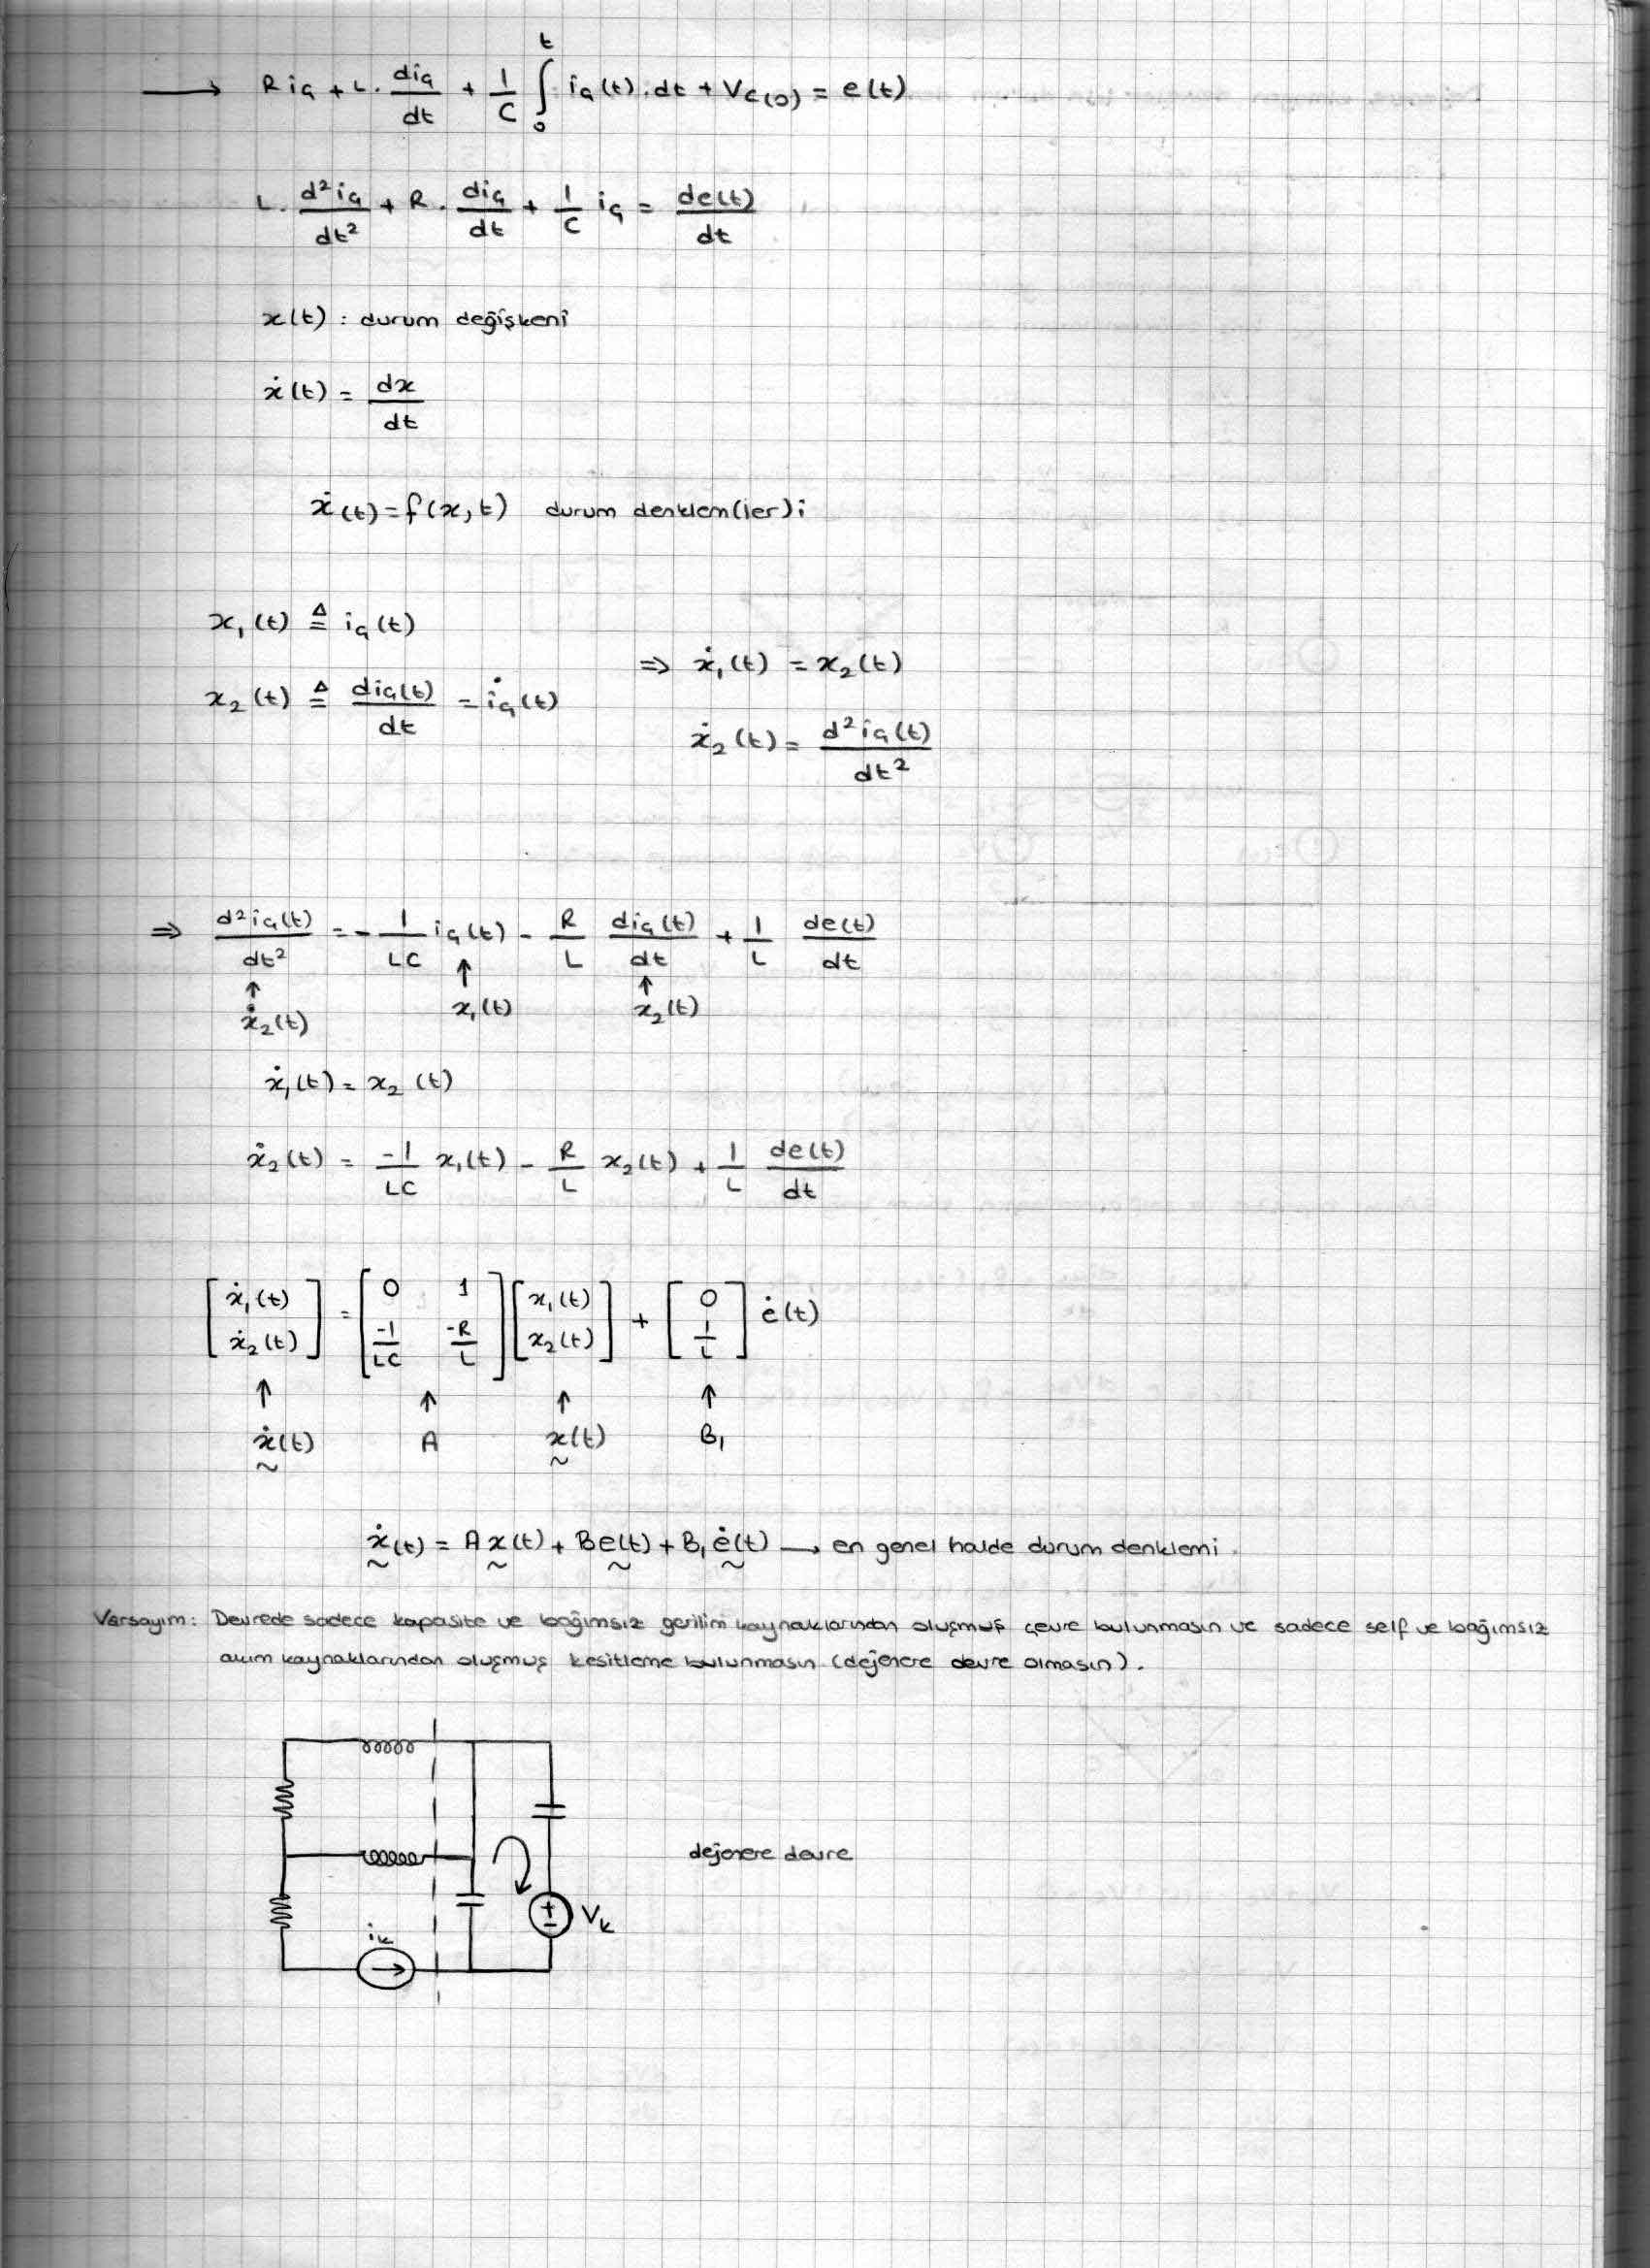 → R i_a + L. di_a/dt + 1/C ∫_0^t i_a(t).dt + V_C(0) = e(t)
L. d²i_a/dt² + R. di_a/dt + 1/C i_a = de(t)/dt
x(t) : durum değişkeni
ẋ(t) = dx/dt
ẋ(t) = f(x,t) durum denklem(ler)i
x₁(t) ≜ i_a(t)
⇒ ẋ₁(t) = x₂(t)
x₂(t) ≜ di_a(t)/dt = i̇_a(t)
ẋ₂(t) = d²i_a(t)/dt²
⇒ d²i_a(t)/dt² = - 1/LC i_a(t) - R/L di_a(t)/dt + 1/L de(t)/dt
↑ ↑ ↑
ẋ₂(t) x₁(t) x₂(t)
ẋ₁(t) = x₂(t)
ẋ₂(t) = -1/LC x₁(t) - R/L x₂(t) + 1/L de(t)/dt
[ẋ₁(t); ẋ₂(t)] = [0 1; -1/LC -R/L] [x₁(t); x₂(t)] + [0; 1/L] ė(t)
↑ ↑ ↑ ↑
ẋ(t) A x(t) B₁
ẋ(t) = A x(t) + B e(t) + B₁ ė(t) → en genel halde durum denklemi.
Varsayım: Devrede sadece kapasite ve bağımsız gerilim kaynaklarından oluşmuş çevre bulunmasın ve sadece self ve bağımsız
akım kaynaklarından oluşmuş kesitleme bulunmasın (dejenere devre olmasın).
dejenere devre
+ - V_k
i_k